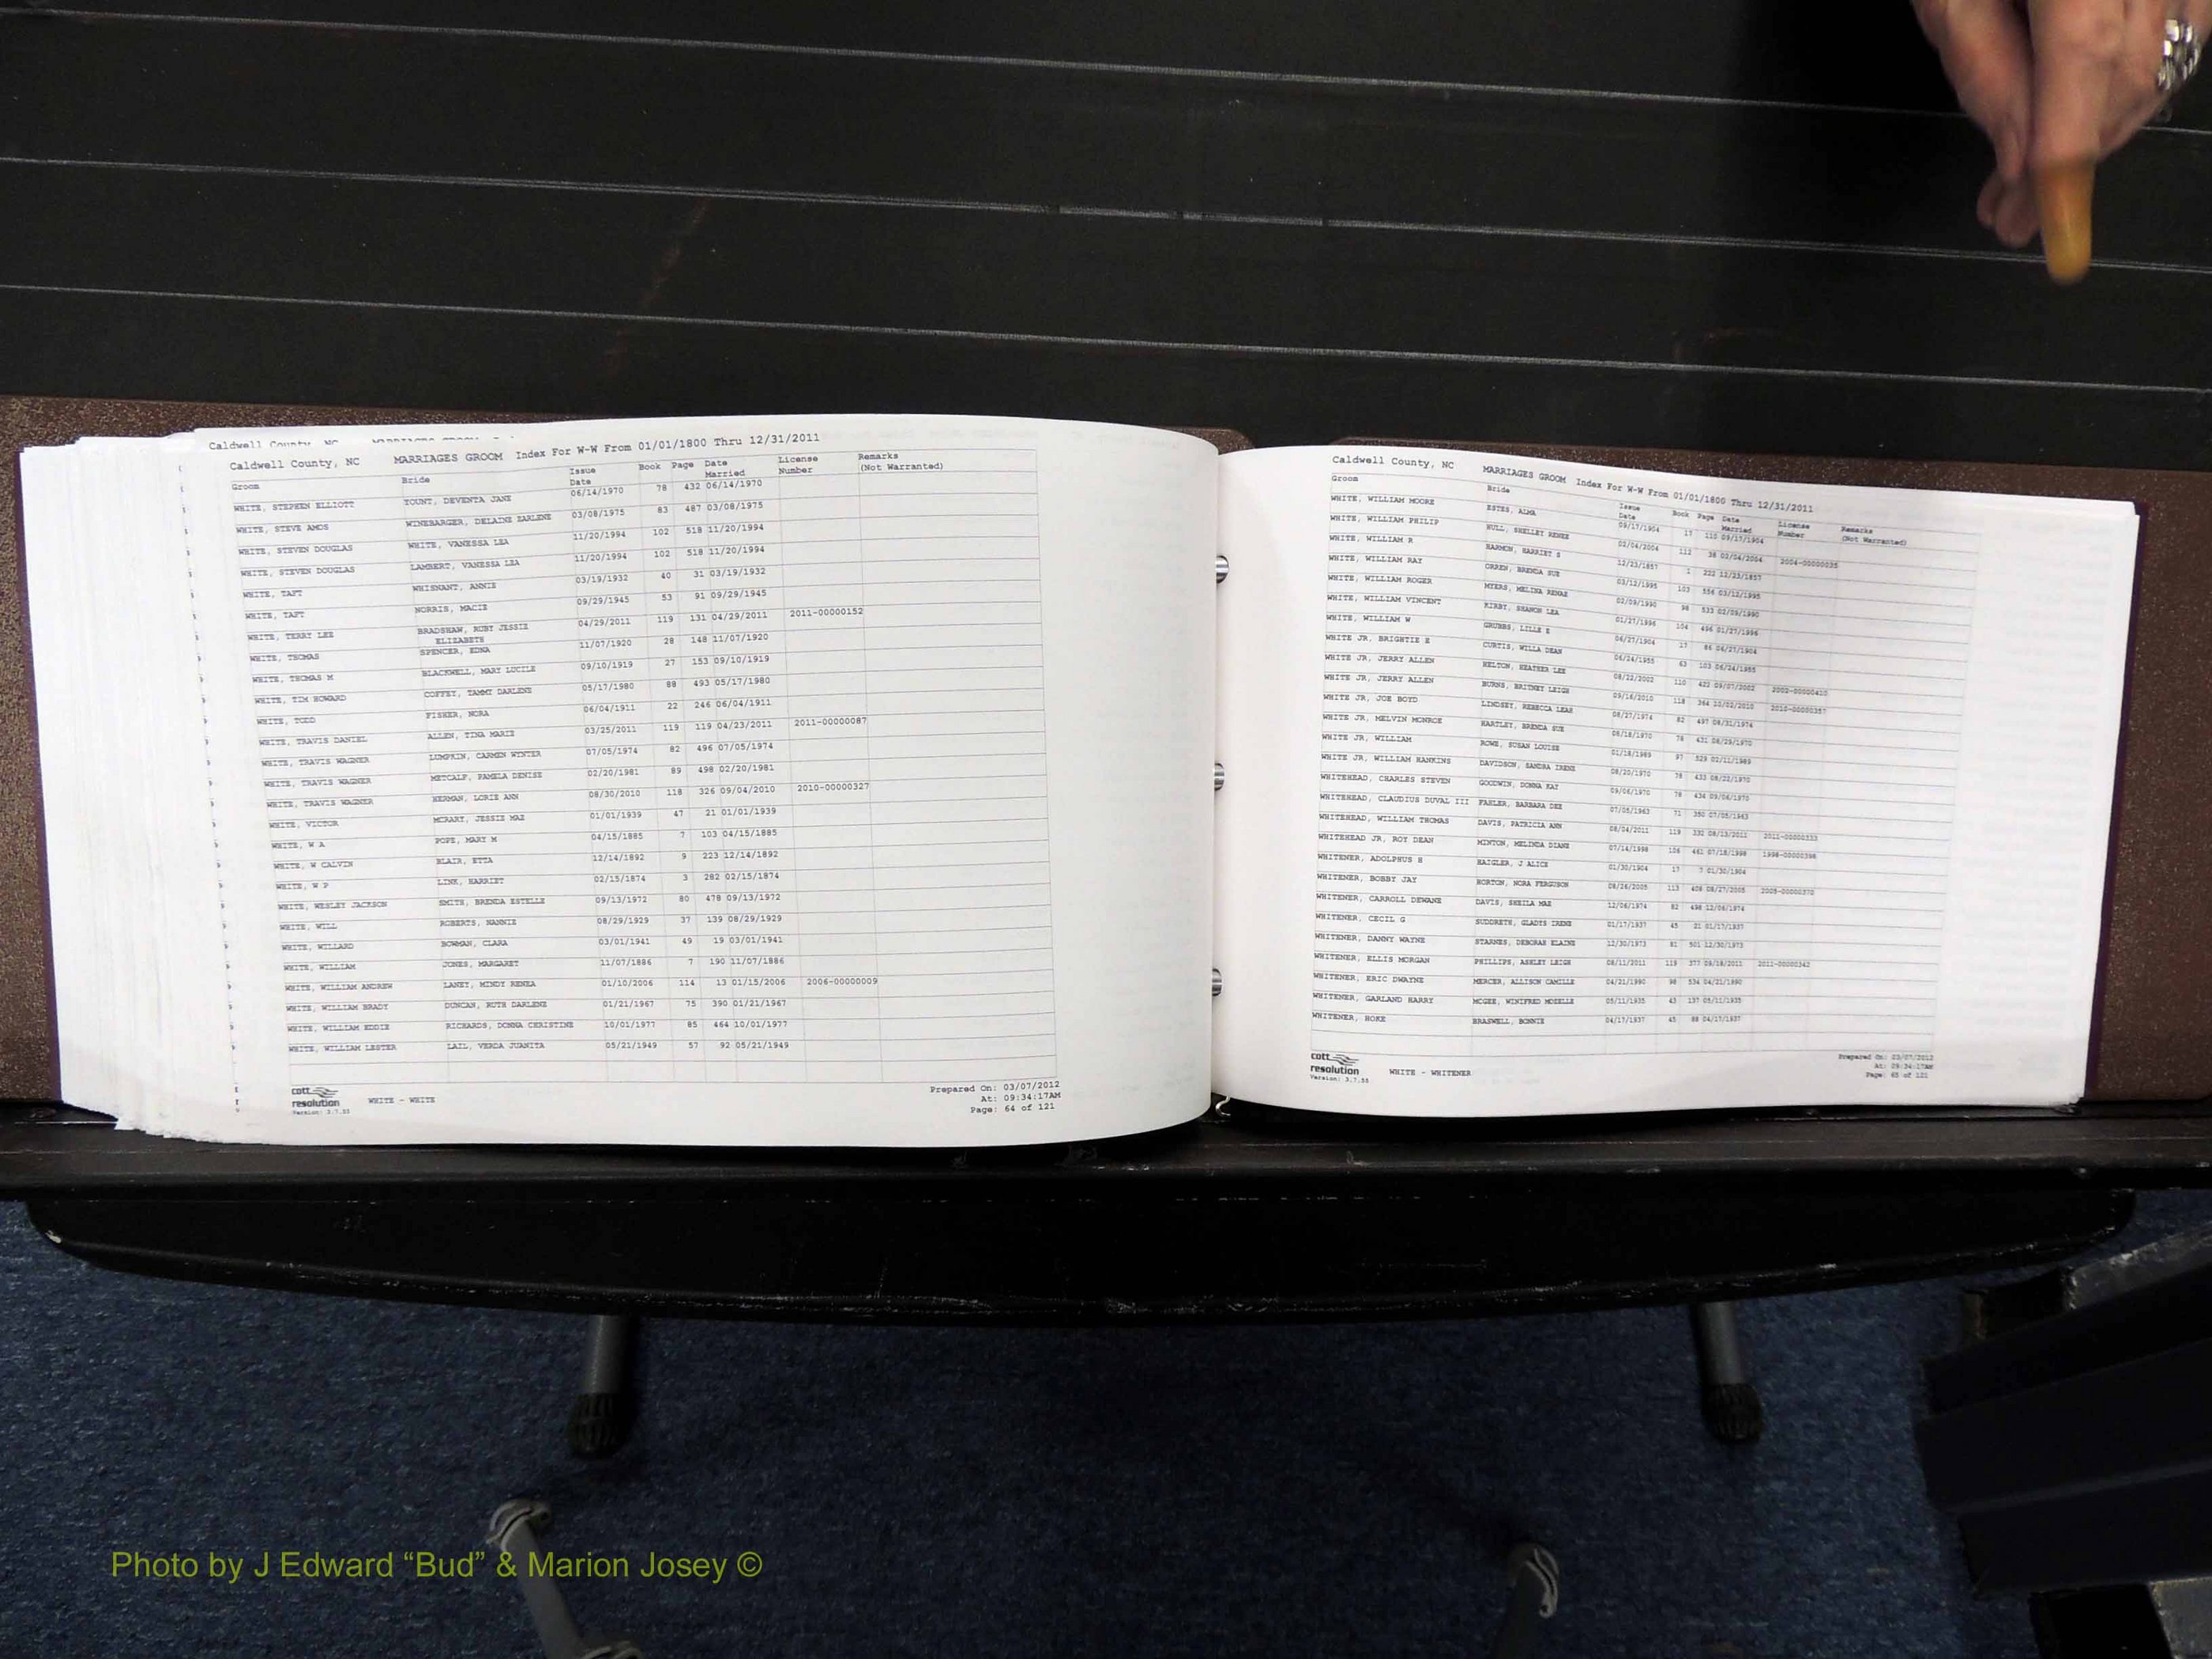 Caldwell County, NC MARRIAGES GROOM
Caldwell County, NC MARRIAGES GROOM Index For W-W From 01/01/1800 Thru 12/31/2011
Groom Bride Issue Date Book Page Date Married License Number Remarks (Not Warranted)
WHITE, STEPHEN ELLIOTT YOUNT, DEVENTA JANE 06/14/1970 78 432 06/14/1970
WHITE, STEVE AMOS WINEBARGER, DELAINE EARLENE 03/08/1975 83 487 03/08/1975
WHITE, STEVEN DOUGLAS WHITE, VANESSA LEA 11/20/1994 102 518 11/20/1994
WHITE, STEVEN DOUGLAS LAMBERT, VANESSA LEA 11/20/1994 102 518 11/20/1994
WHITE, TAFT WHISNANT, ANNIE 03/19/1932 40 31 03/19/1932
WHITE, TAFT NORRIS, MACIE 09/29/1945 53 91 09/29/1945
WHITE, TERRY LEE BRADSHAW, RUBY JESSIE ELIZABETH 04/29/2011 119 131 04/29/2011 2011-00000152
WHITE, THOMAS SPENCER, EDNA 11/07/1920 28 148 11/07/1920
WHITE, THOMAS M BLACKWELL, MARY LUCILE 09/10/1919 27 153 09/10/1919
WHITE, TIM HOWARD COFFEY, TAMMY DARLENE 05/17/1980 88 493 05/17/1980
WHITE, TODD FISHER, NORA 06/04/1911 22 246 06/04/1911
WHITE, TRAVIS DANIEL ALLEN, TINA MARIE 03/25/2011 119 119 04/23/2011 2011-00000087
WHITE, TRAVIS WAGNER LUMPKIN, CARMEN WINTER 07/05/1974 82 496 07/05/1974
WHITE, TRAVIS WAGNER METCALF, PAMELA DENISE 02/20/1981 89 498 02/20/1981
WHITE, TRAVIS WAGNER HERMAN, LORIE ANN 08/30/2010 118 326 09/04/2010 2010-00000327
WHITE, VICTOR MCRARY, JESSIE MAE 01/01/1939 47 21 01/01/1939
WHITE, W A POPE, MARY M 04/15/1885 7 103 04/15/1885
WHITE, W CALVIN BLAIR, ETTA 12/14/1892 9 223 12/14/1892
WHITE, W P LINK, HARRIET 02/15/1874 3 282 02/15/1874
WHITE, WESLEY JACKSON SMITH, BRENDA ESTELLE 09/13/1972 80 478 09/13/1972
WHITE, WILL ROBERTS, NANNIE 08/29/1929 37 139 08/29/1929
WHITE, WILLARD BOWMAN, CLARA 03/01/1941 49 19 03/01/1941
WHITE, WILLIAM JONES, MARGARET 11/07/1886 7 190 11/07/1886
WHITE, WILLIAM ANDREW LANEY, MINDY RENEA 01/10/2006 114 13 01/15/2006 2006-00000009
WHITE, WILLIAM BRADY DUNCAN, RUTH DARLENE 01/21/1967 75 390 01/21/1967
WHITE, WILLIAM EDDIE RICHARDS, DONNA CHRISTINE 10/01/1977 85 464 10/01/1977
WHITE, WILLIAM LESTER LAIL, VERDA JUANITA 05/21/1949 57 92 05/21/1949
cott
resolution
Version: 3.7.55
WHITE - WHITE
Prepared On: 03/07/2012
At: 09:34:17AM
Page: 64 of 121
Caldwell County, NC MARRIAGES GROOM Index For W-W From 01/01/1800 Thru 12/31/2011
Groom Bride Issue Date Book Page Date Married License Number Remarks (Not Warranted)
WHITE, WILLIAM MOORE ESTES, ALMA 09/17/1904 17 110 09/17/1904
WHITE, WILLIAM PHILIP HULL, SHELLEY RENEE 02/04/2004 112 38 02/04/2004 2004-00000035
WHITE, WILLIAM R HARMON, HARRIET S 12/23/1857 1 222 12/23/1857
WHITE, WILLIAM RAY ORREN, BRENDA SUE 03/12/1995 103 556 03/12/1995
WHITE, WILLIAM ROGER MYERS, MELINA RENAE 02/09/1990 98 533 02/09/1990
WHITE, WILLIAM VINCENT KIRBY, SHARON LEA 01/27/1996 104 496 01/27/1996
WHITE, WILLIAM W GRUBBS, LILLE E 06/27/1904 17 86 06/27/1904
WHITE JR, BRIGHTIE E CURTIS, WILLA DEAN 06/24/1955 63 103 06/24/1955
WHITE JR, JERRY ALLEN HELTON, HEATHER LEE 08/22/2002 110 422 09/07/2002 2002-00000410
WHITE JR, JERRY ALLEN BURNS, BRITNEY LEIGH 09/16/2010 118 364 10/02/2010 2010-00000357
WHITE JR, JOE BOYD LINDSEY, REBECCA LEAH 08/27/1974 82 497 08/31/1974
WHITE JR, MELVIN MONROE HARTLEY, BRENDA SUE 08/18/1970 78 431 08/29/1970
WHITE JR, WILLIAM ROWE, SUSAN LOUISE 01/18/1989 97 529 02/11/1989
WHITE JR, WILLIAM HANKINS DAVIDSON, SANDRA IRENE 08/20/1970 78 433 08/22/1970
WHITEHEAD, CHARLES STEVEN GOODWIN, DONNA KAY 09/06/1970 78 434 09/06/1970
WHITEHEAD, CLAUDIUS DUVAL III FAHLER, BARBARA DEE 07/05/1963 71 350 07/05/1963
WHITEHEAD, WILLIAM THOMAS DAVIS, PATRICIA ANN 08/04/2011 119 332 08/13/2011 2011-00000333
WHITEHEAD JR, ROY DEAN MINTON, MELINDA DIANE 07/14/1998 106 461 07/18/1998 1998-00000398
WHITENER, ADOLPHUS H HAIGLER, J ALICE 01/30/1904 17 7 01/30/1904
WHITENER, BOBBY JAY HORTON, NORA FERGUSON 08/26/2005 113 408 08/27/2005 2005-00000370
WHITENER, CARROLL DEWANE DAVIS, SHEILA MAE 12/06/1974 82 498 12/06/1974
WHITENER, CECIL G SUDDRETH, GLADYS IRENE 01/17/1937 45 21 01/17/1937
WHITENER, DANNY WAYNE STARNES, DEBORAH ELAINE 12/30/1973 81 501 12/30/1973
WHITENER, ELLIS MORGAN PHILLIPS, ASHLEY LEIGH 08/11/2011 119 377 09/18/2011 2011-00000342
WHITENER, ERIC DWAYNE MERCER, ALLISON CAMILLE 04/21/1990 98 534 04/21/1990
WHITENER, GARLAND HARRY MCGEE, WINIFRED MOZELLE 05/11/1935 43 137 05/11/1935
WHITENER, HOKE BRASWELL, BONNIE 04/17/1937 45 88 04/17/1937
cott
resolution
Version: 3.7.55
WHITE - WHITENER
Prepared On: 03/07/2012
At: 09:34:17AM
Page: 65 of 121
Photo by J Edward “Bud” & Marion Josey ©